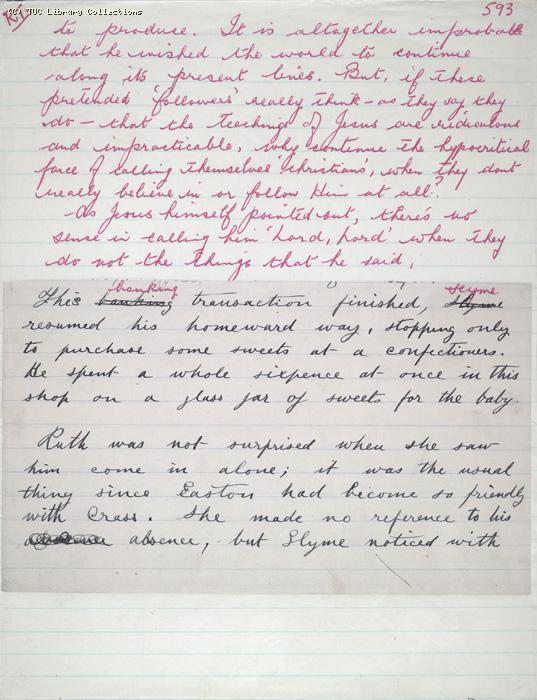 (C) TUC Library Collections
593
RP
to produce. It is altogether improbable
that he wished the world to continue
along its present lines. But, if these
pretended 'followers' really think – as they say they
do – that the teachings of Jesus are ridiculous
and impracticable, why continue the hypocritical
farce of calling themselves 'christians', when they dont
really believe in or follow Him at all?
As Jesus himself pointed out, there's no
sense in calling him 'Lord, Lord' when they
do not the things that he said.
banking slyme
This banking transaction finished, slyme
resumed his homeward way, stopping only
to purchase some sweets at a confectioners.
He spent a whole sixpence at once in this
shop on a glass jar of sweets for the baby.
Ruth was not surprised when she saw
him come in alone; it was the usual
thing since Easton had become so friendly
with Crass. She made no reference to his
absence, but Slyme noticed with